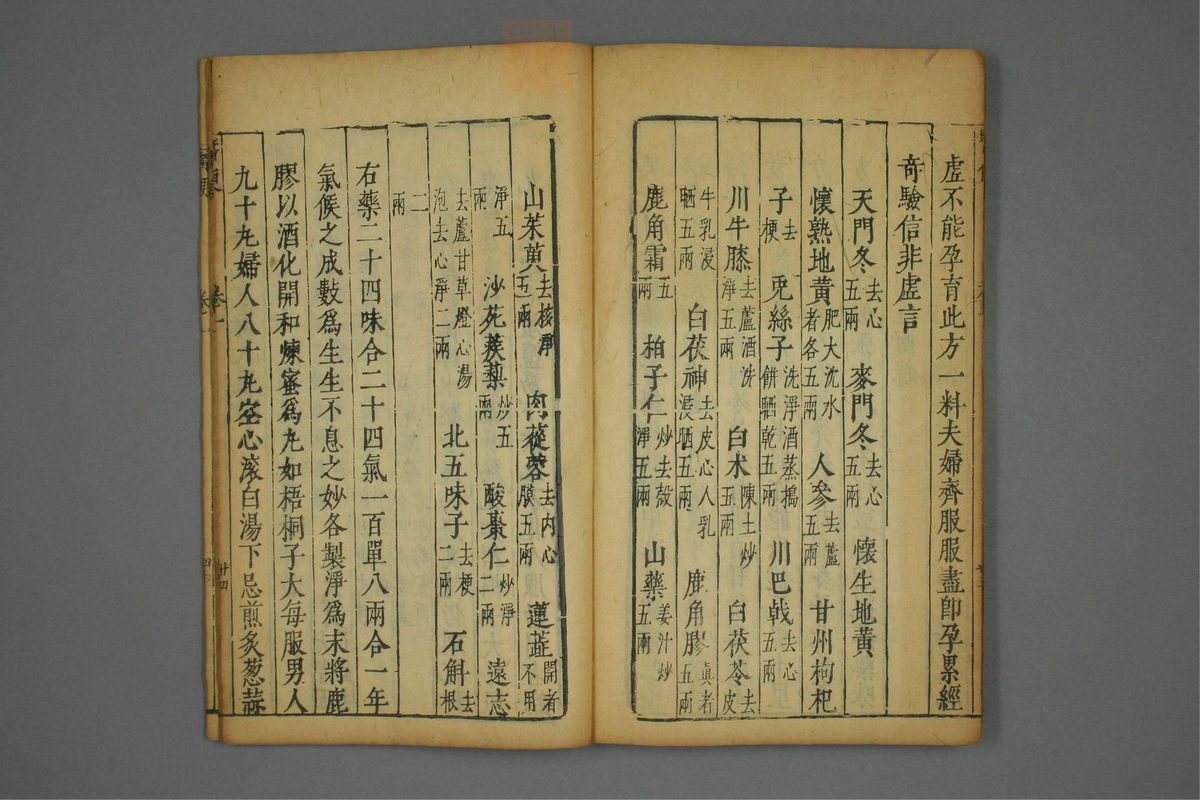 虛不能孕育此方一料夫婦齊服服盡卽孕累經
奇驗信非虛言
天門冬去心五兩 麥門冬去心五兩 懷生地黃
懷熟地黃肥大沈水者各五兩 人參去蘆五兩 甘州枸杞
子去梗 兎絲子洗淨酒蒸搗餅晒乾五兩 川巴戟去心五兩
川牛膝去蘆酒洗淨五兩 白术陳土炒五兩 白茯苓去皮
牛乳浸晒五兩 白茯神去皮心人乳浸晒五兩 鹿角膠眞者五兩
鹿角霜五兩 柏子仁炒去殼淨五兩 山藥姜汁炒五兩
山茱萸去核淨五兩 肉蓯蓉去內心膜五兩 蓮蕋開者不用
淨五兩 沙苑蒺蔾炒五兩 酸棗仁炒淨二兩 遠志
去蘆甘草燈心湯泡去心淨二兩 北五味子去梗二兩 石斛去根
二兩
右藥二十四味合二十四氣一百單八兩合一年
氣候之成數爲生生不息之妙各製淨爲末將鹿
膠以酒化開和煉蜜爲丸如梧桐子大每服男人
九十丸婦人八十丸空心滚白湯下忌煎炙葱蒜
卷一 廿四